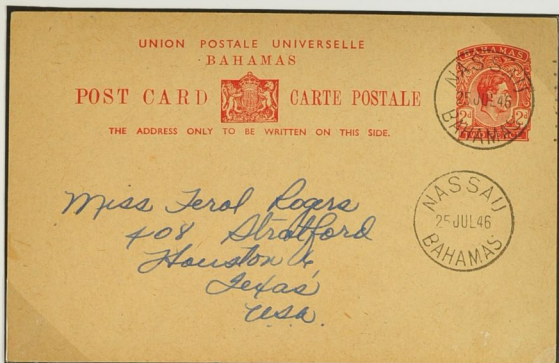 UNION POSTALE UNIVERSELLE
BAHAMAS
POST CARD CARTE POSTALE
THE ADDRESS ONLY TO BE WRITTEN ON THIS SIDE.
BAHAMAS
2d 2d
NASSAU
25 JUL 46
BAHAMAS
NASSAU
25 JUL 46
BAHAMAS
Miss Ferol Rogers
408 Stratford
Houston 6
Texas
USA.